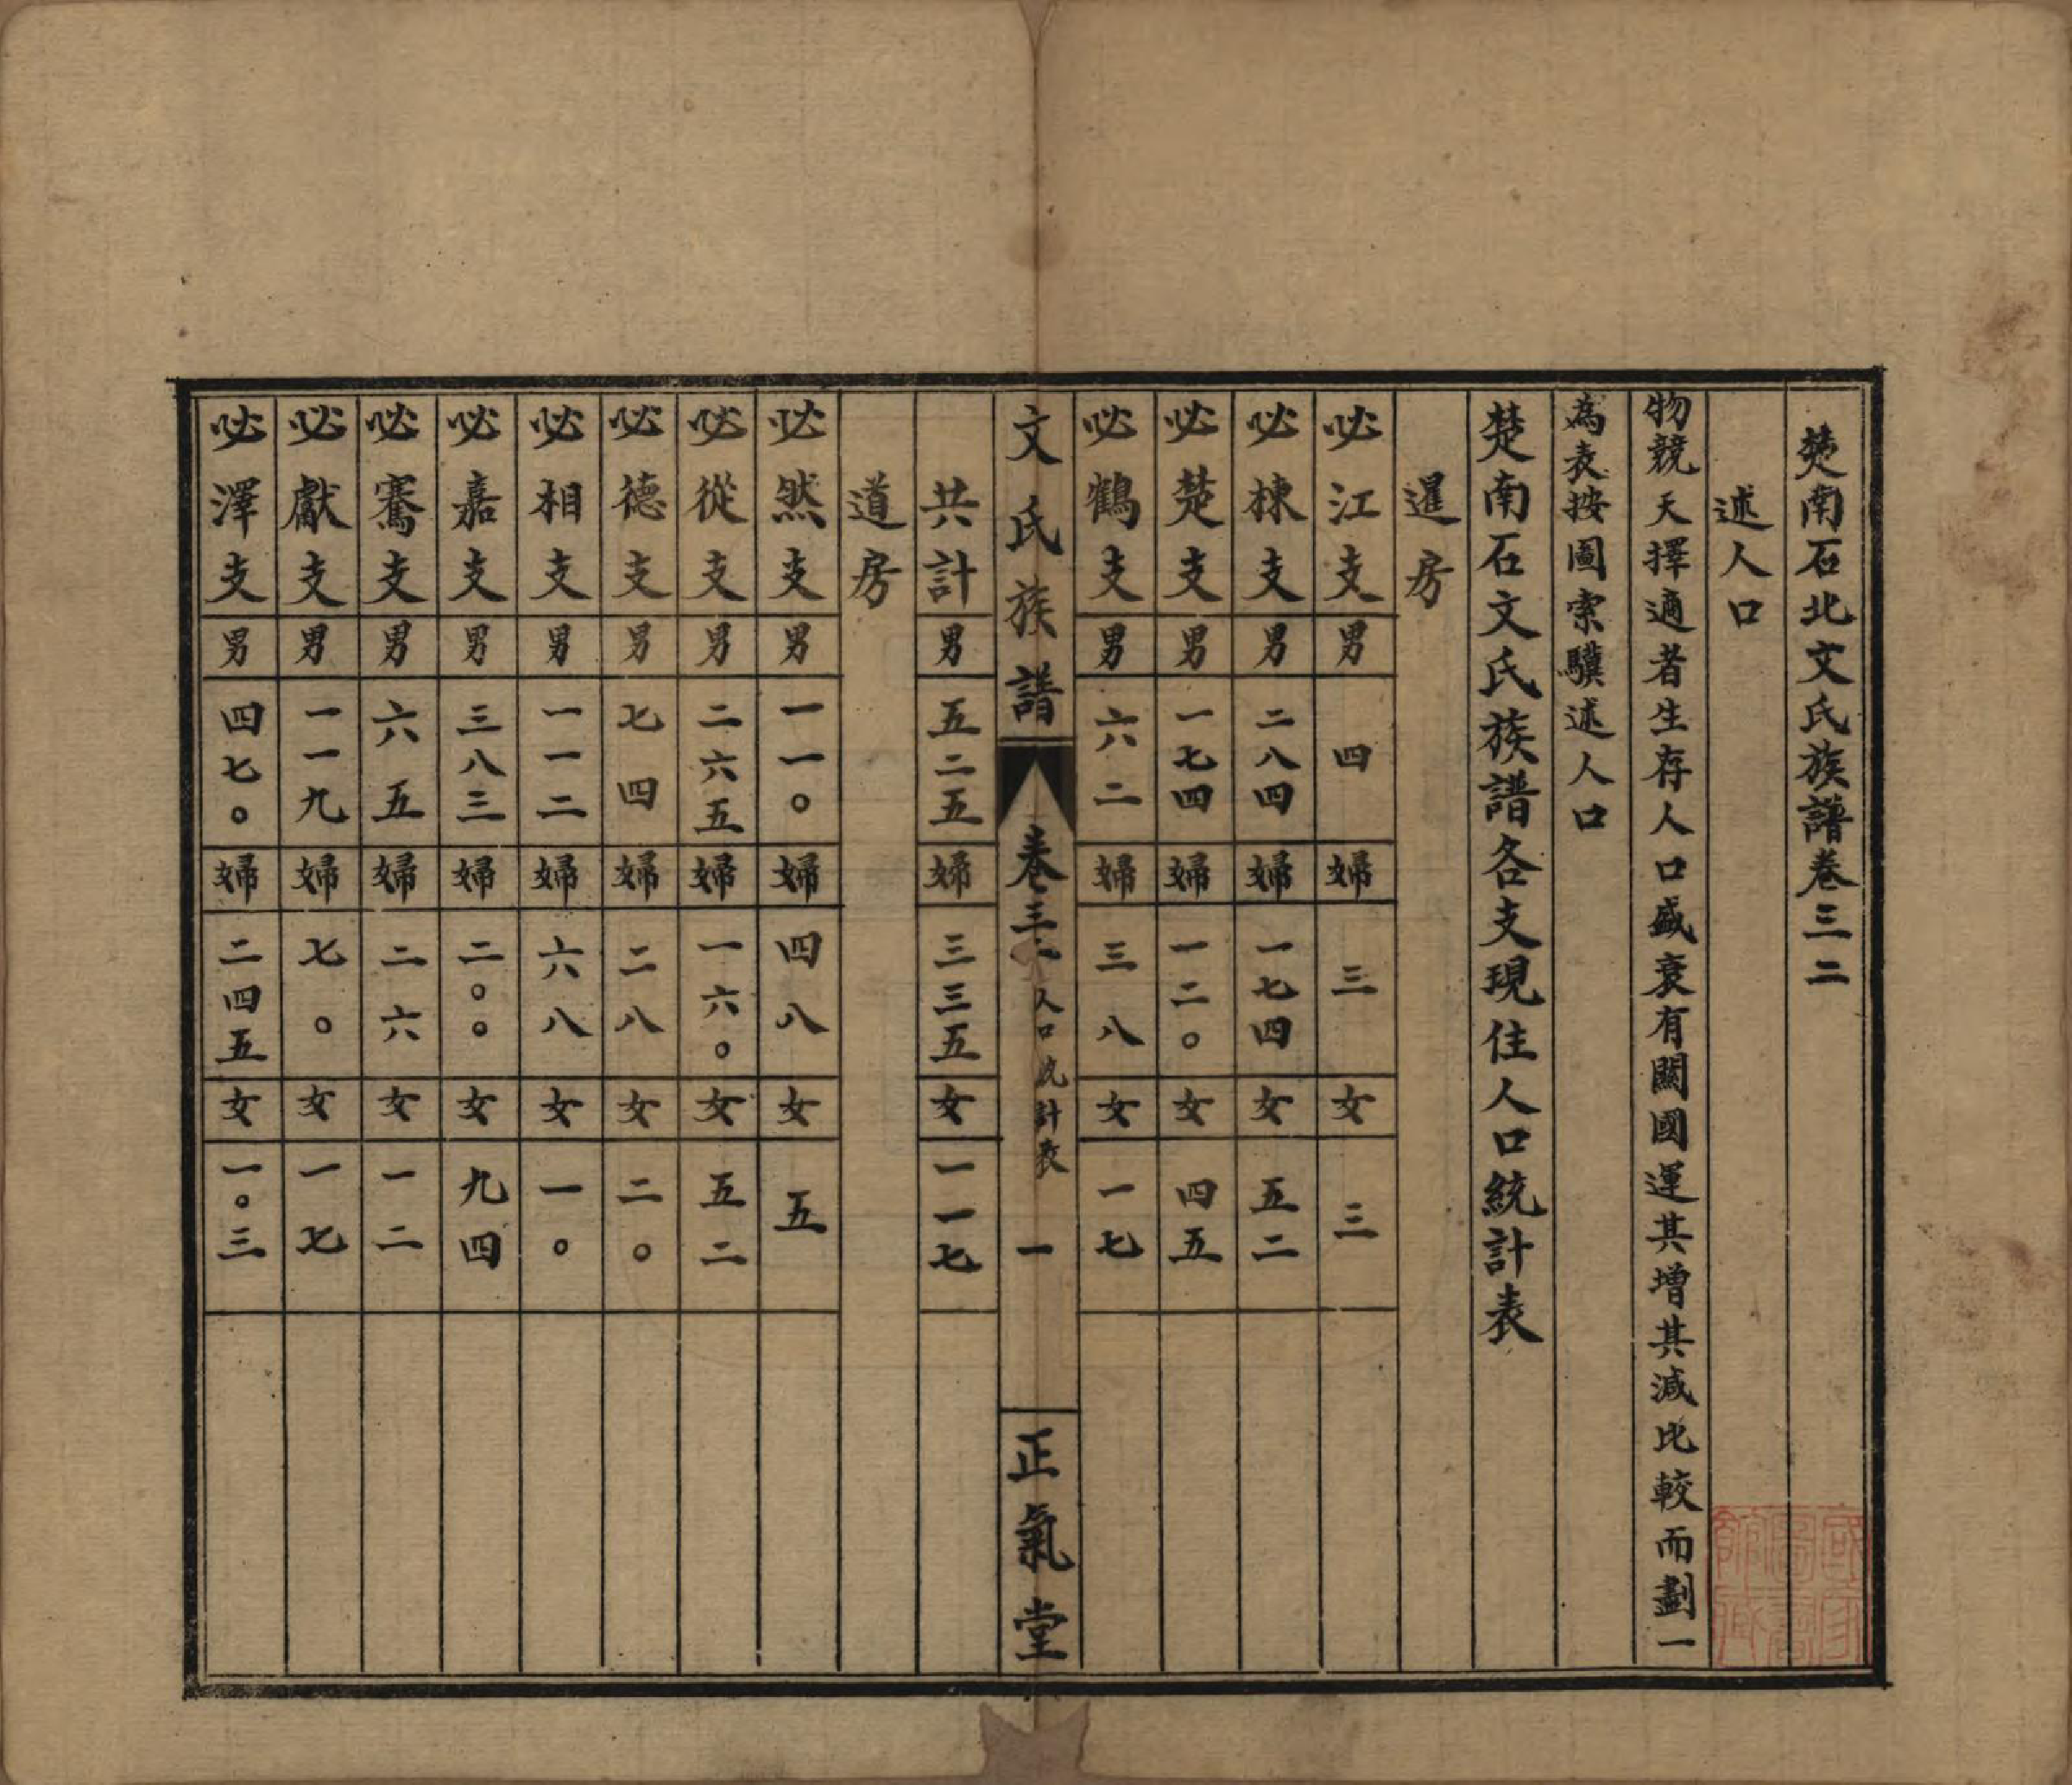 楚南石北文氏族譜卷三二
述人口
物競天擇適者生存人口盛衰有關國運其增其減比較而劃一
為表按圖索驥述人口
楚南石文氏族譜各支現住人口統計表
暹房
必江支 男 四 婦 三 女 三
必棟支 男 二八四 婦 一七四 女 五二
必楚支 男 一七四 婦 一二〇 女 四五
必鶴支 男 六二 婦 三八 女 一七
文氏族譜 卷三二 人口統計表 一 正氣堂
共計 男 五二五 婦 三三五 女 一一七
道房
必然支 男 一一〇 婦 四八 女 五
必從支 男 二六五 婦 一六〇 女 五二
必德支 男 七四 婦 二八 女 二〇
必相支 男 一一二 婦 六八 女 一〇
必嘉支 男 三八三 婦 二〇〇 女 九四
必騫支 男 六五 婦 二六 女 一二
必獻支 男 一一九 婦 七〇 女 一七
必澤支 男 四七〇 婦 二四五 女 一〇三
國家
圖書
館藏